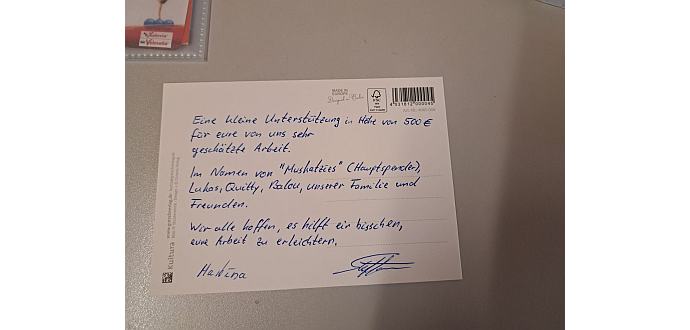 MADE IN EUROPE
FSC
4 831612 000045
Eine kleine Unterstützung in Höhe von 500 €
für eure von uns sehr
geschätzte Arbeit.
Im Namen von "Mushatzies" (Hauptspender),
Lukas, Quitty, Balou, unserer Familie und
Freunden.
Wir alle hoffen, es hilft ein bisschen,
eure Arbeit zu erleichtern.
Martina
Kultura